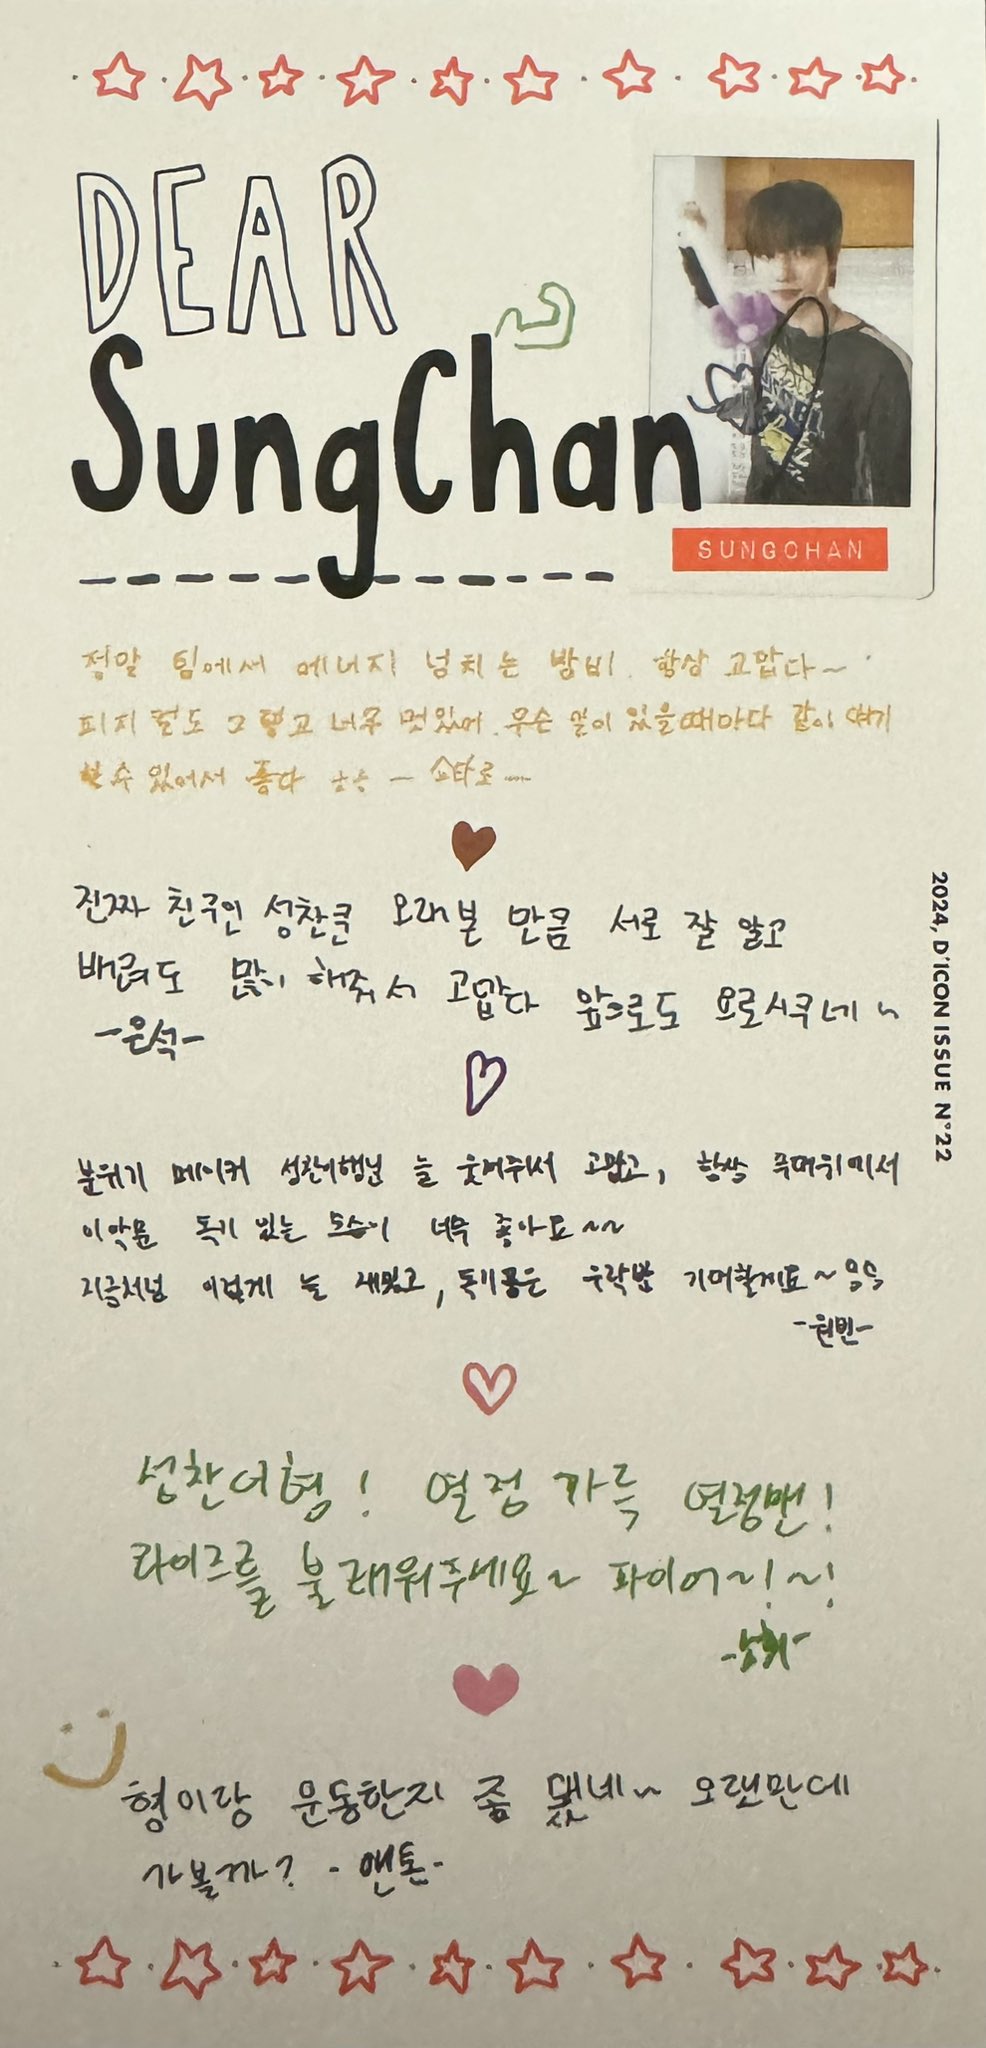 DEAR
SungChan
SUNGCHAN
정말 팀에서 에너지 넘치는 방비. 항상 고맙다~
피지컬도 그렇고 너무 멋있어. 무슨 일이 있을때마다 같이 얘기
할 수 있어서 좋다 - 쇼타로
진짜 친구인 성찬쿤 오래본 만큼 서로 잘 알고
배려도 많이 해줘서 고맙다 앞으로도 요로시쿠네~
-은석-
분위기 메이커 성찬이행님 늘 웃겨줘서 고맙고, 항상
이악문 독기 있는 모습이 너무 좋아요~~
지금처럼 이렇게 늘 재밌고, 기여할게요~
-원빈-
성찬이형! 열정 가득 열정맨!
라이즈를 불태워주세요~ 파이어~!~!
형이랑 운동한지 좀 됐네~ 오랜만에
가볼까? -앤톤-
2024, D'ICON ISSUE N°22